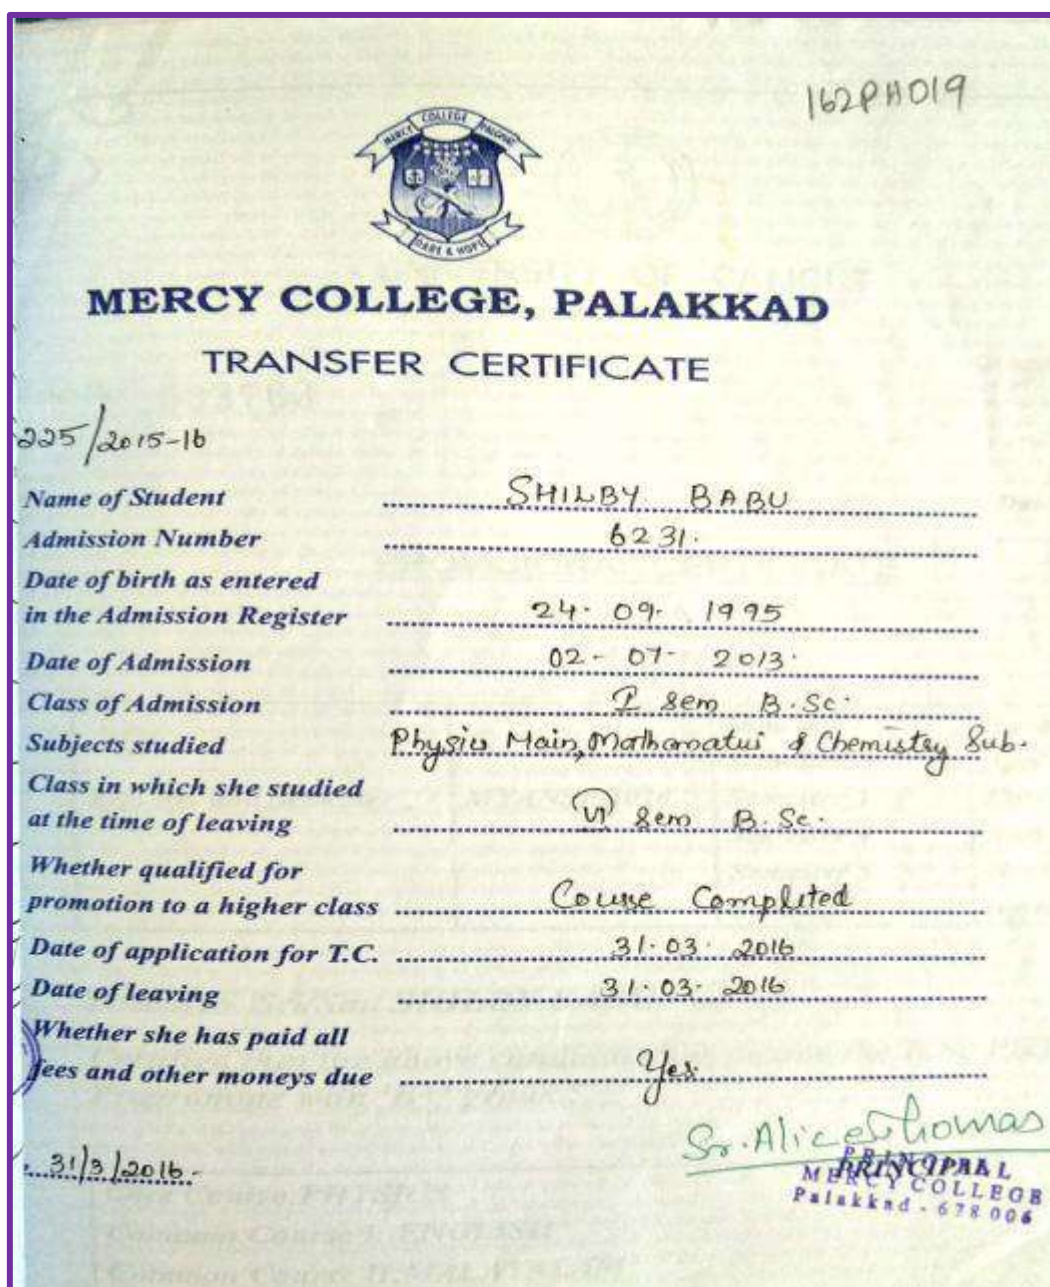 162PH019
MERCY COLLEGE PALGHAT
DARE & HOPE
MERCY COLLEGE, PALAKKAD
TRANSFER CERTIFICATE
225/2015-16
Name of Student SHILBY BABU
Admission Number 6231.
Date of birth as entered
in the Admission Register 24.09.1995
Date of Admission 02-07-2013.
Class of Admission I Sem B.Sc.
Subjects studied Physics Main, Mathematics & Chemistry Sub.
Class in which she studied
at the time of leaving VI Sem B.Sc.
Whether qualified for
promotion to a higher class Course Completed
Date of application for T.C. 31.03.2016
Date of leaving 31.03.2016
Whether she has paid all
fees and other moneys due Yes
Sr. Alice Thomas
31/3/2016.
PRINCIPAL
PRINCIPAL
MERCY COLLEGE
Palakkad - 678 006